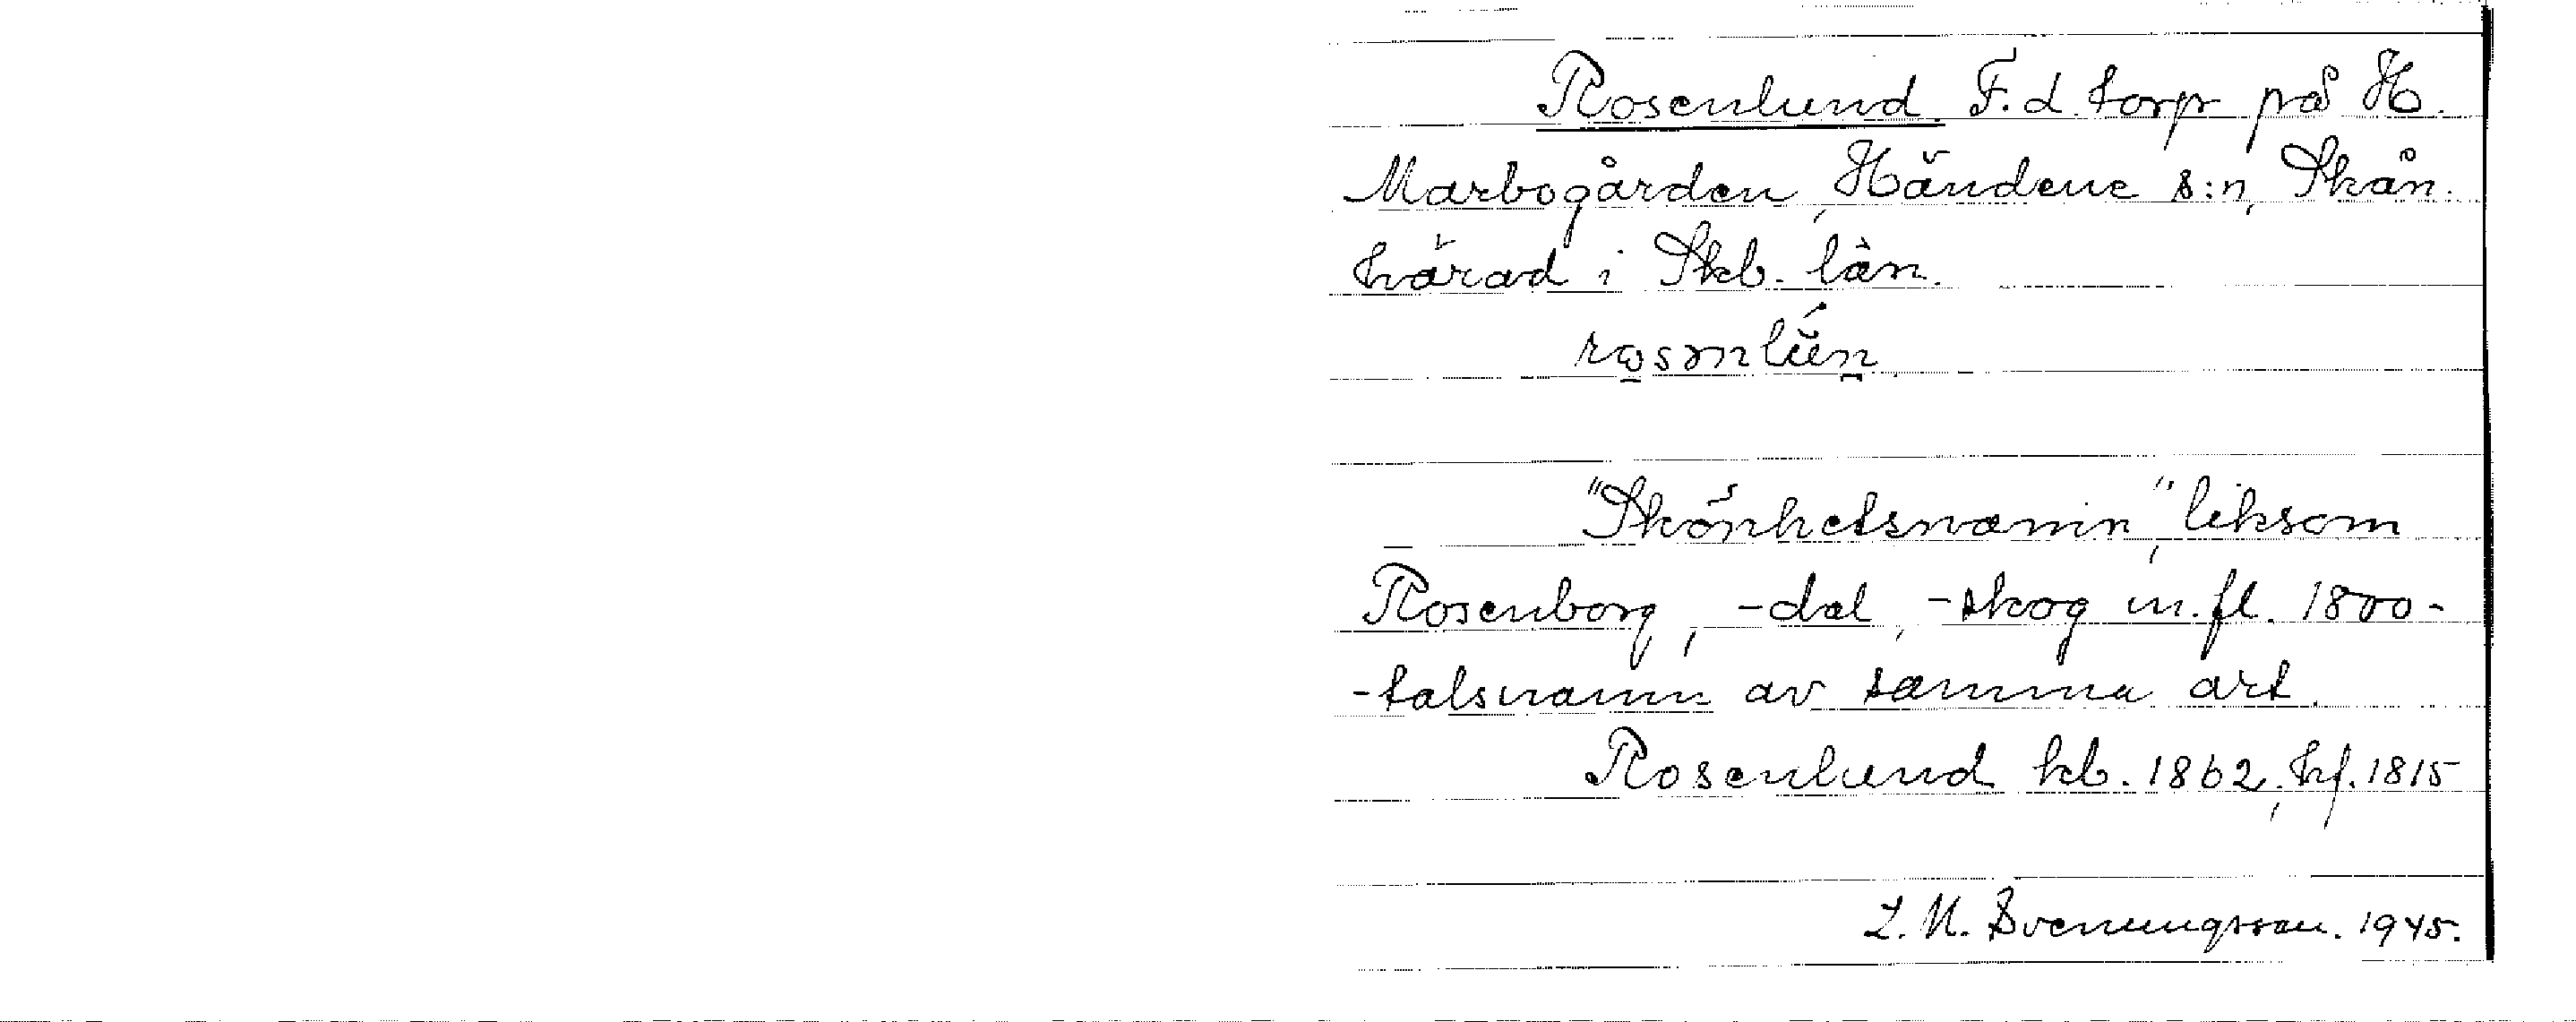 Rosenlund. F.d. torp på H.
Marbogården, Händene s:n, Skån.
härad i Skb. län.
"Skönhetsnamn", liksom
Rosenborg, -dal, -skog m.fl. 1800-
-talsnamn av samma art.
Rosenlund kb. 1862, hf. 1815
L. M. Svenungsson. 1945.